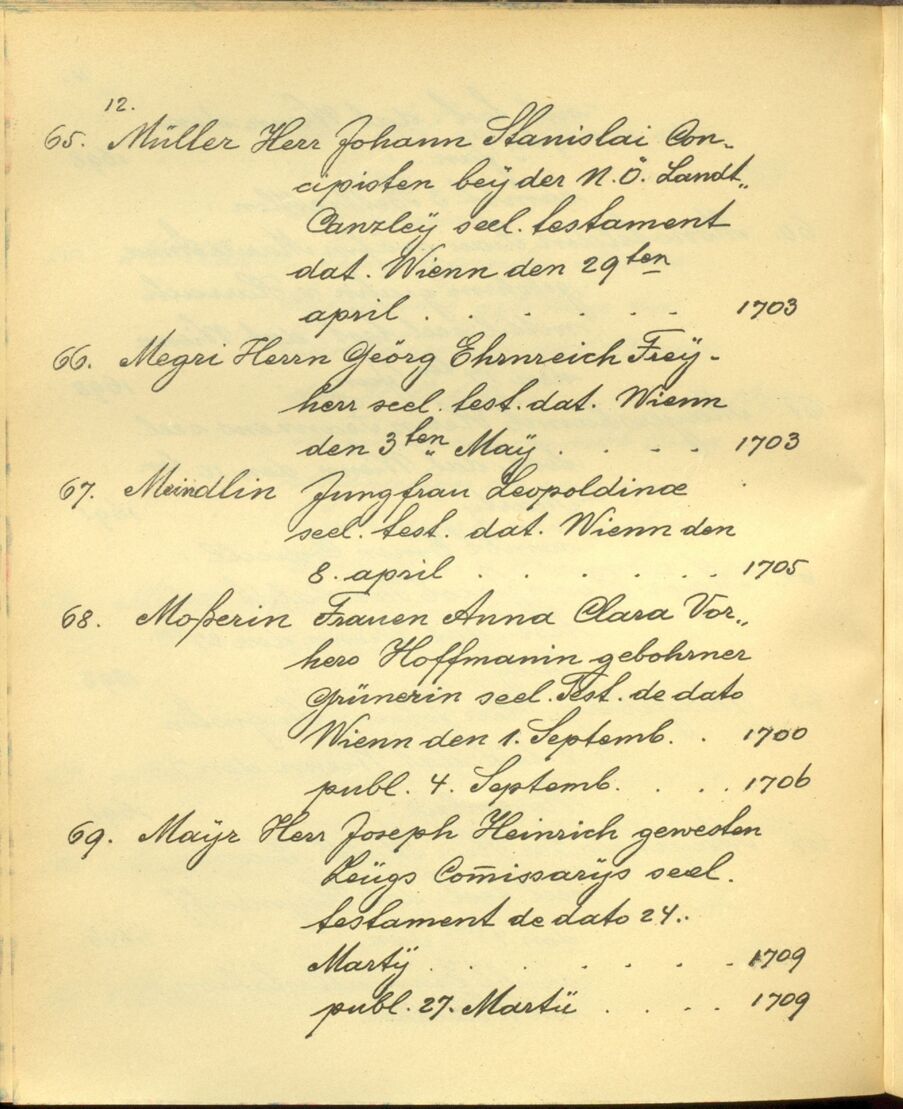 12.
65. Müller Herr Johann Stanislai Con-
cipisten beÿ der N. Ö. Landt„
Canzleÿ seel. testament
dat. Wienn den 29ten
april . . . . . . . 1703
66. Megri Herrn Geörg Ehrnreich Freÿ-
herr seel. test. dat. Wienn
den 3ten Maÿ . . . . 1703
67. Meindlin Jungfrau Leopoldinæ
seel. test. dat. Wienn den
8. april . . . . . . 1705
68. Moßerin Frauen Anna Clara Vor„
hero Hoffmanin gebohrner
Grünerin seel. Test. de dato
Wienn den 1. Septemb. . 1700
publ. 4. Septemb. . . . 1706
69. Maÿr Herr Joseph Heinrich gewesten
Zeügs Com̅issarÿs seel.
testament de dato 24..
Martÿ . . . . . . . 1709
publ. 27. Martii . . . . 1709